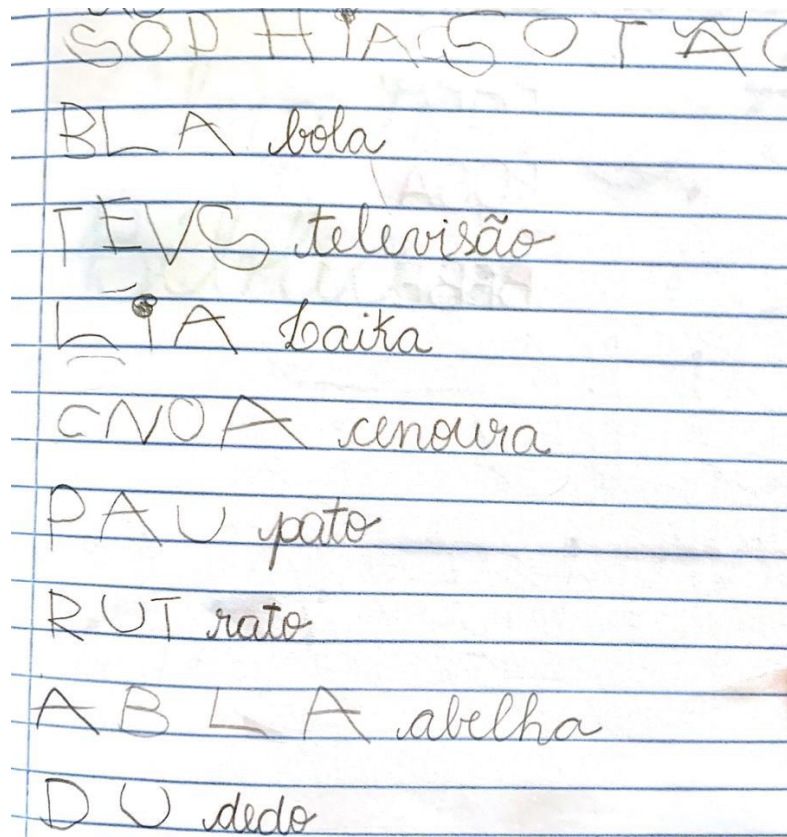 SOPHIA SOTÃO
BLA bola
TEVS televisão
LIA Laika
CNOA cenoura
PAU pato
RUT rato
ABLA abelha
DU dedo